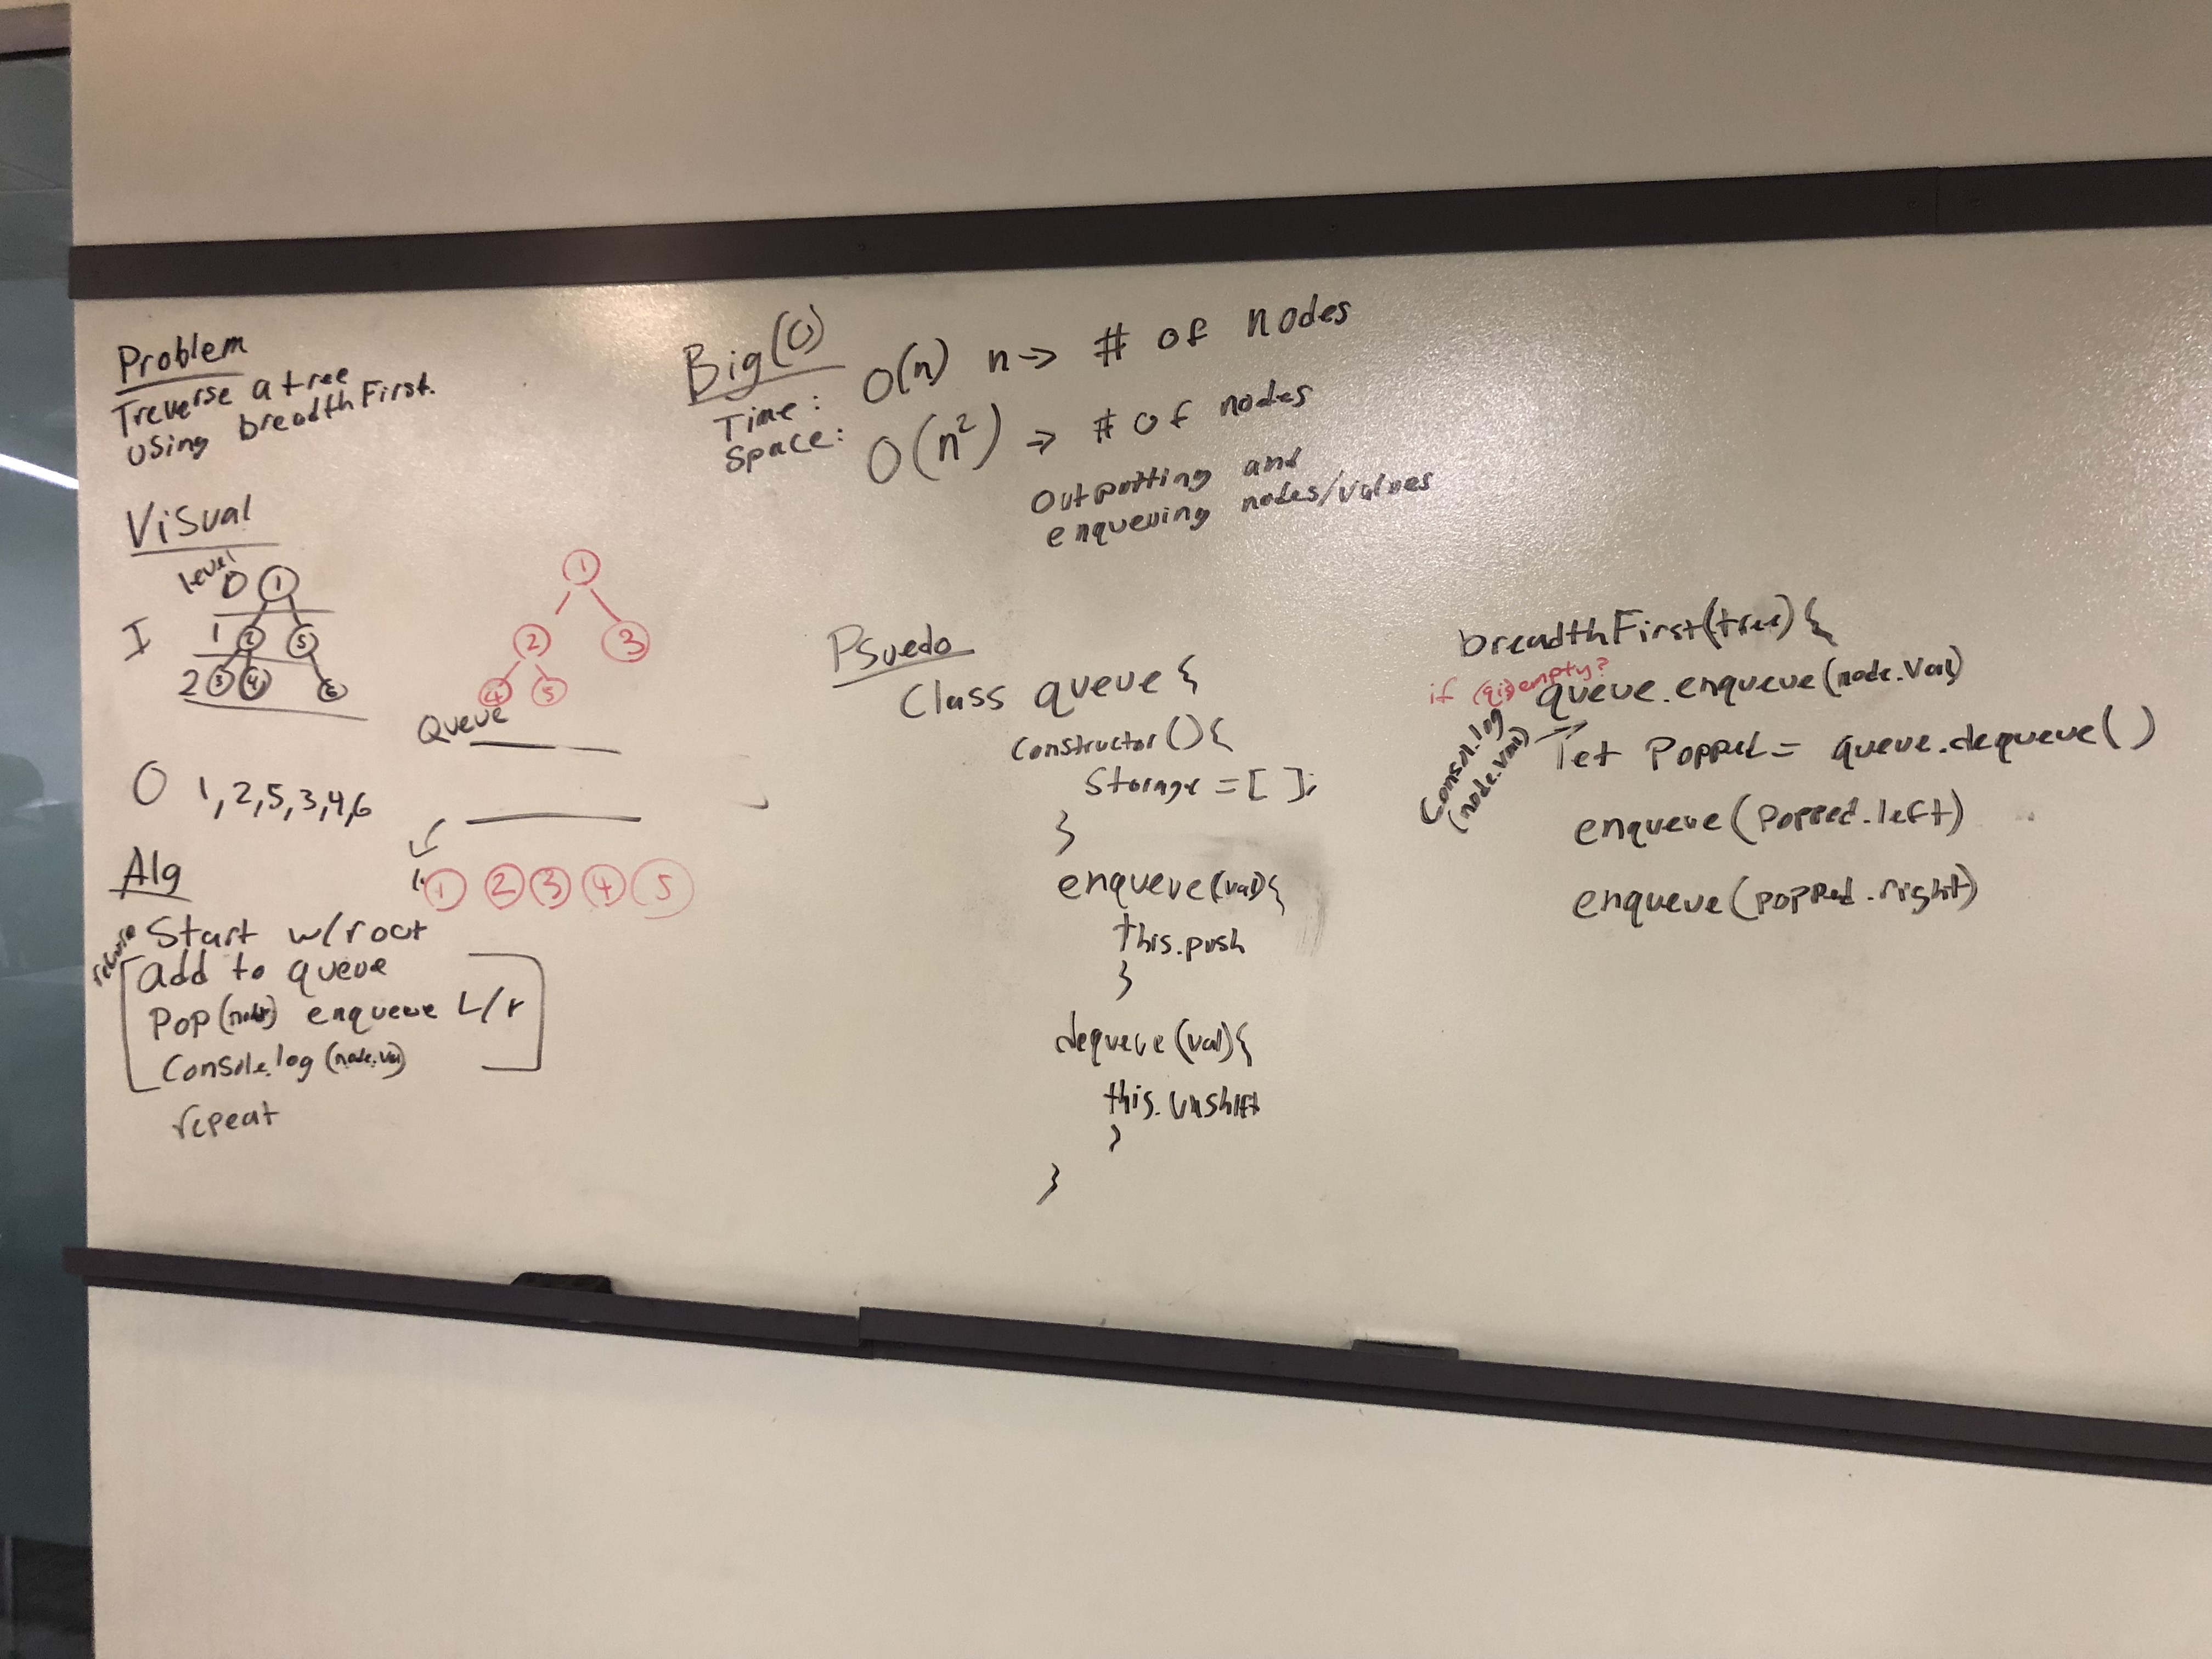 Problem
Treverse a tree
using breadthFirst.
Visual
level
0 1
I
1 2 5
2 3 4 6
1
2 3
4 5
Queue
O 1,2,5,3,4,6
1 2 3 4 5
Alg
Start w/root
add to queue
Pop(node) enqueue L/r
Console.log(node.val)
repeat
Big(O)
Time: O(n) n→ # of nodes
Space: O(n²) → # of nodes
Outputting and
enqueuing nodes/values
Psuedo
Class queue {
Constructor(){
Storage = [ ];
}
enqueue(val){
this.push
}
dequeue(val){
this.unshift
}
}
breadthFirst(tree){
if (q is empty?
queue.enqueue(node.val)
Consol.log
(node.val)
let Popped = queue.dequeue()
enqueue(Popped.left)
enqueue(popped.right)